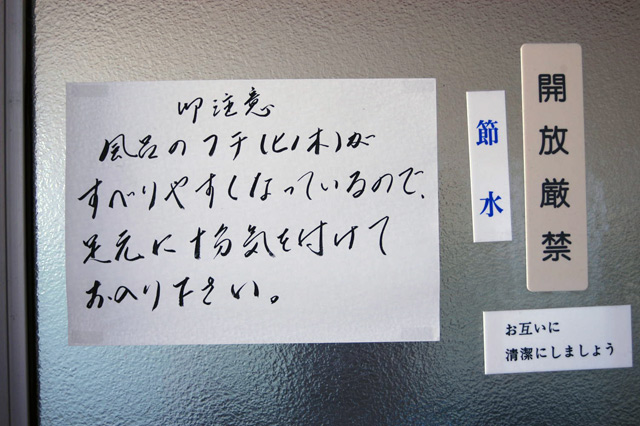 御注意
風呂のフチ(ヒノ木)が
すべりやすくなっているので、
足元に御気を付けて
おのり下さい。
節水
開放厳禁
お互いに
清潔にしましょう